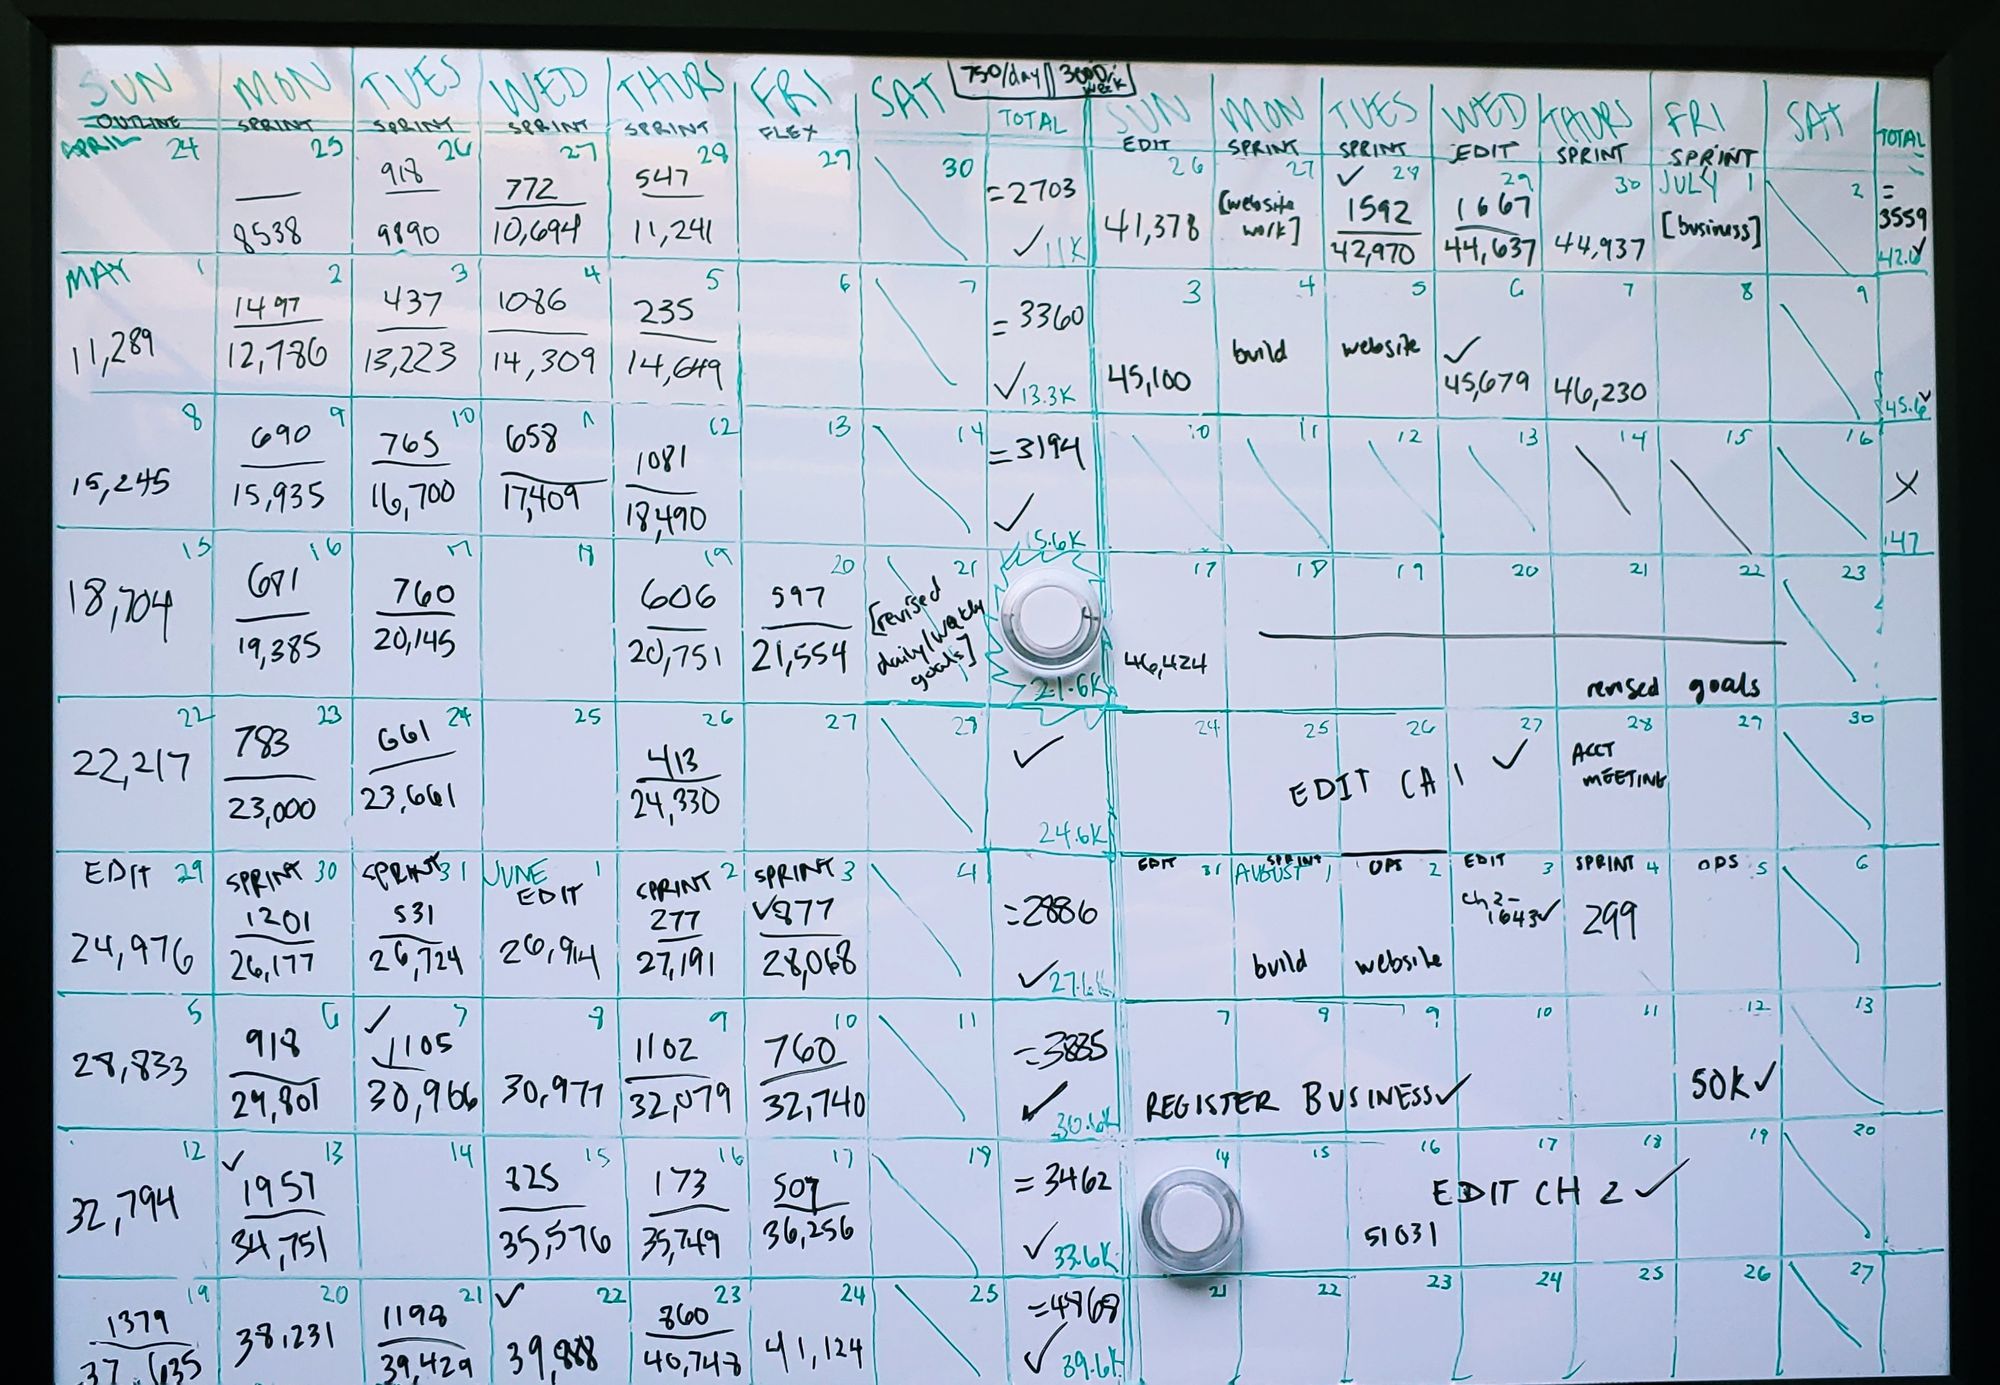 750/day 3000/week
SUN MON TUES WED THURS FRI SAT TOTAL
OUTLINE SPRINT SPRINT SPRINT SPRINT FLEX
APRIL 24 25 26 27 28 29 30
918 772 547 =2703
8538 9890 10,694 11,241 ✓11K
MAY 1 2 3 4 5 6 7
1497 437 1086 235 =3360
11,289 12,786 13,223 14,309 14,649 ✓13.3K
8 9 10 11 12 13 14
690 765 658 1081 =3194
15,245 15,935 16,700 17,409 18,490 ✓15.6K
15 16 17 18 19 20 21
681 760 606 597 [revised
daily/weekly
goals]
18,704 19,385 20,145 20,751 21,554 21.6K
22 23 24 25 26 27 28
783 661 413 ✓
22,217 23,000 23,661 24,330 24.6K
EDIT 29 SPRINT 30 SPRINT 31 JUNE 1 EDIT SPRINT 2 SPRINT 3 4
1201 531 277 ✓877 =2886
24,976 26,177 26,724 26,914 27,191 28,068 ✓27.6K
5 6 7 8 9 10 11
918 ✓1105 1102 760 =3885
28,833 29,801 30,966 30,977 32,079 32,740 ✓30.6K
12 13 14 15 16 17 18
✓1957 825 173 507 =3462
32,794 34,751 35,576 35,749 36,256 ✓33.6K
19 20 21 22 23 24 25
1379 1198 ✓ 860 =4868
37,635 38,231 39,429 39,888 40,748 41,124 ✓39.6K
SUN MON TUES WED THURS FRI SAT TOTAL
EDIT SPRINT SPRINT EDIT SPRINT SPRINT
26 27 28 29 30 JULY 1 2
[website
work] ✓ 1592 1667 [business] =3559
41,378 42,970 44,637 44,937
3 4 5 6 7 8 9
build website ✓
45,100 45,679 46,230 45.6✓
10 11 12 13 14 15 16
X
47
17 18 19 20 21 22 23
46,424
revised goals
24 25 26 27 28 29 30
EDIT CH 1 ✓ ACCT
MEETING
EDIT 31 AUGUST 1 SPRINT OPS 2 EDIT 3 SPRINT 4 OPS 5 6
ch 2 -
1643✓ 299
build website
7 8 9 10 11 12 13
REGISTER BUSINESS✓ 50K✓
14 15 16 17 18 19 20
EDIT CH 2 ✓
51031
21 22 23 24 25 26 27